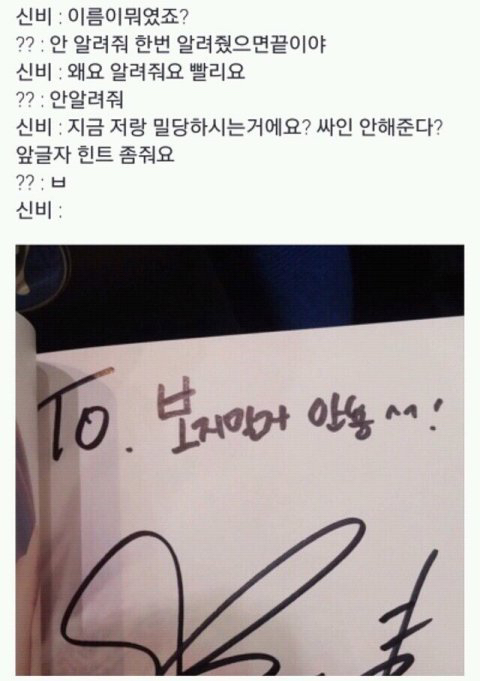 신비 : 이름이뭐였죠?
?? : 안 알려줘 한번 알려줬으면끝이야
신비 : 왜요 알려줘요 빨리요
?? : 안알려줘
신비 : 지금 저랑 밀당하시는거에요? 싸인 안해준다?
앞글자 힌트 좀줘요
?? : ㅂ
신비 :
To. 안농 ^^!